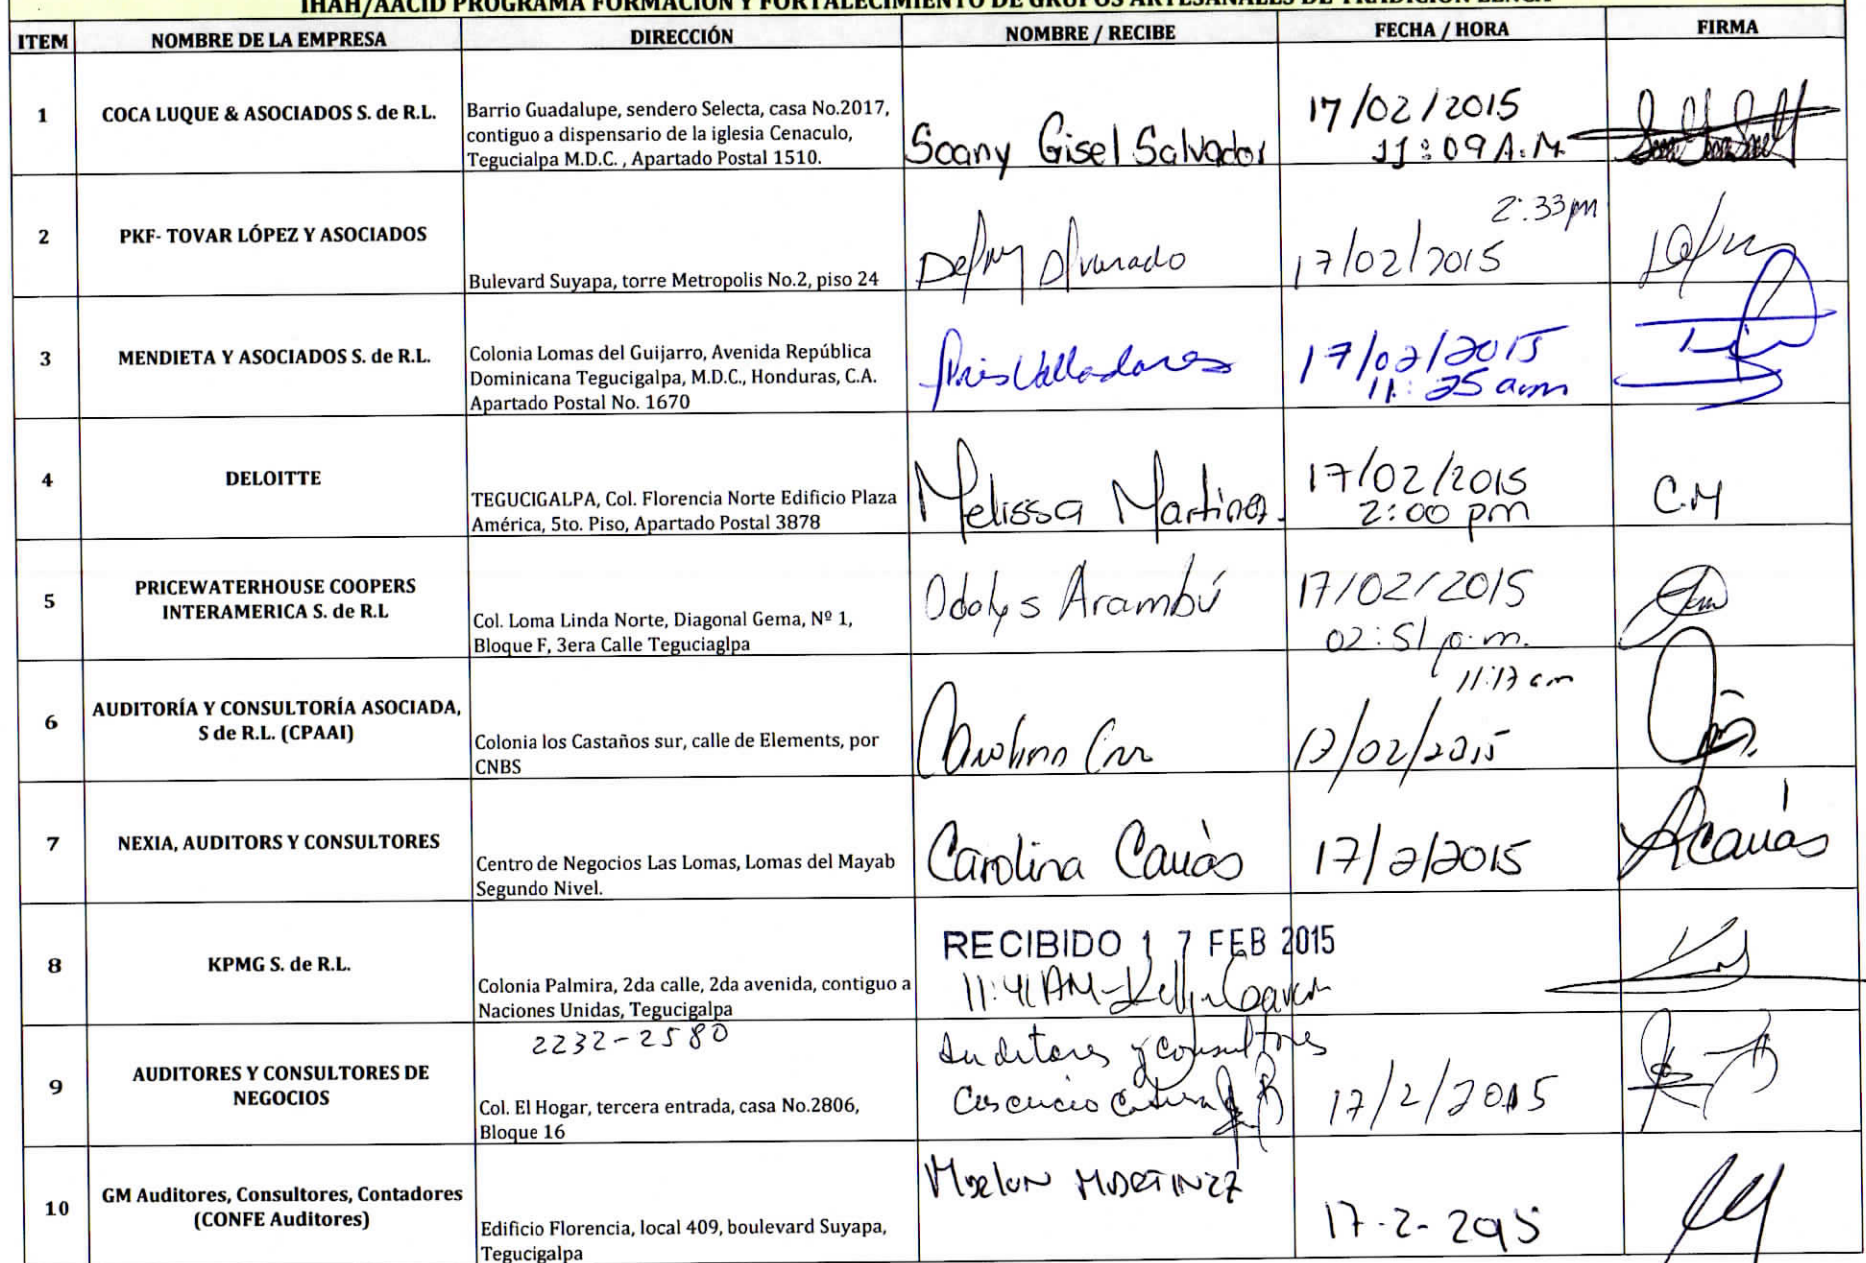 IHAH/AACID PROGRAMA FORMACIÓN Y FORTALECIMIENTO DE GRUPOS ARTESANALES DE TRADICIÓN LENCA
ITEM NOMBRE DE LA EMPRESA DIRECCIÓN NOMBRE / RECIBE FECHA / HORA FIRMA
1 COCA LUQUE & ASOCIADOS S. de R.L.
Barrio Guadalupe, sendero Selecta, casa No.2017,
contiguo a dispensario de la iglesia Cenaculo,
Tegucialpa M.D.C. , Apartado Postal 1510.
Soany Gisel Salvador
17/02/2015
11:09 A.M.
2 PKF- TOVAR LÓPEZ Y ASOCIADOS
Bulevard Suyapa, torre Metropolis No.2, piso 24
Alvarado
2:33pm
17/02/2015
3 MENDIETA Y ASOCIADOS S. de R.L.
Colonia Lomas del Guijarro, Avenida República
Dominicana Tegucigalpa, M.D.C., Honduras, C.A.
Apartado Postal No. 1670
Valladares
17/02/2015
11:25 am
4 DELOITTE
TEGUCIGALPA, Col. Florencia Norte Edificio Plaza
América, 5to. Piso, Apartado Postal 3878
Melissa Martinez.
17/02/2015
2:00 pm
C.M
5 PRICEWATERHOUSE COOPERS
INTERAMERICA S. de R.L
Col. Loma Linda Norte, Diagonal Gema, Nº 1,
Bloque F, 3era Calle Teguciaglpa
Odalys Arambú
17/02/2015
02:51 p.m.
6 AUDITORÍA Y CONSULTORÍA ASOCIADA,
S de R.L. (CPAAI)
Colonia los Castaños sur, calle de Elements, por
CNBS
11:17 am
17/02/2015
7 NEXIA, AUDITORS Y CONSULTORES
Centro de Negocios Las Lomas, Lomas del Mayab
Segundo Nivel.
Carolina Cauás
17/2/2015
Acauás
8 KPMG S. de R.L.
Colonia Palmira, 2da calle, 2da avenida, contiguo a
Naciones Unidas, Tegucigalpa
RECIBIDO 17 FEB 2015
11:41 AM-
9 AUDITORES Y CONSULTORES DE
NEGOCIOS
2232-2580
Col. El Hogar, tercera entrada, casa No.2806,
Bloque 16
Auditores y consultores
17/2/2015
10 GM Auditores, Consultores, Contadores
(CONFE Auditores)
Edificio Florencia, local 409, boulevard Suyapa,
Tegucigalpa
Marlon MARTINEZ
17-2-2015